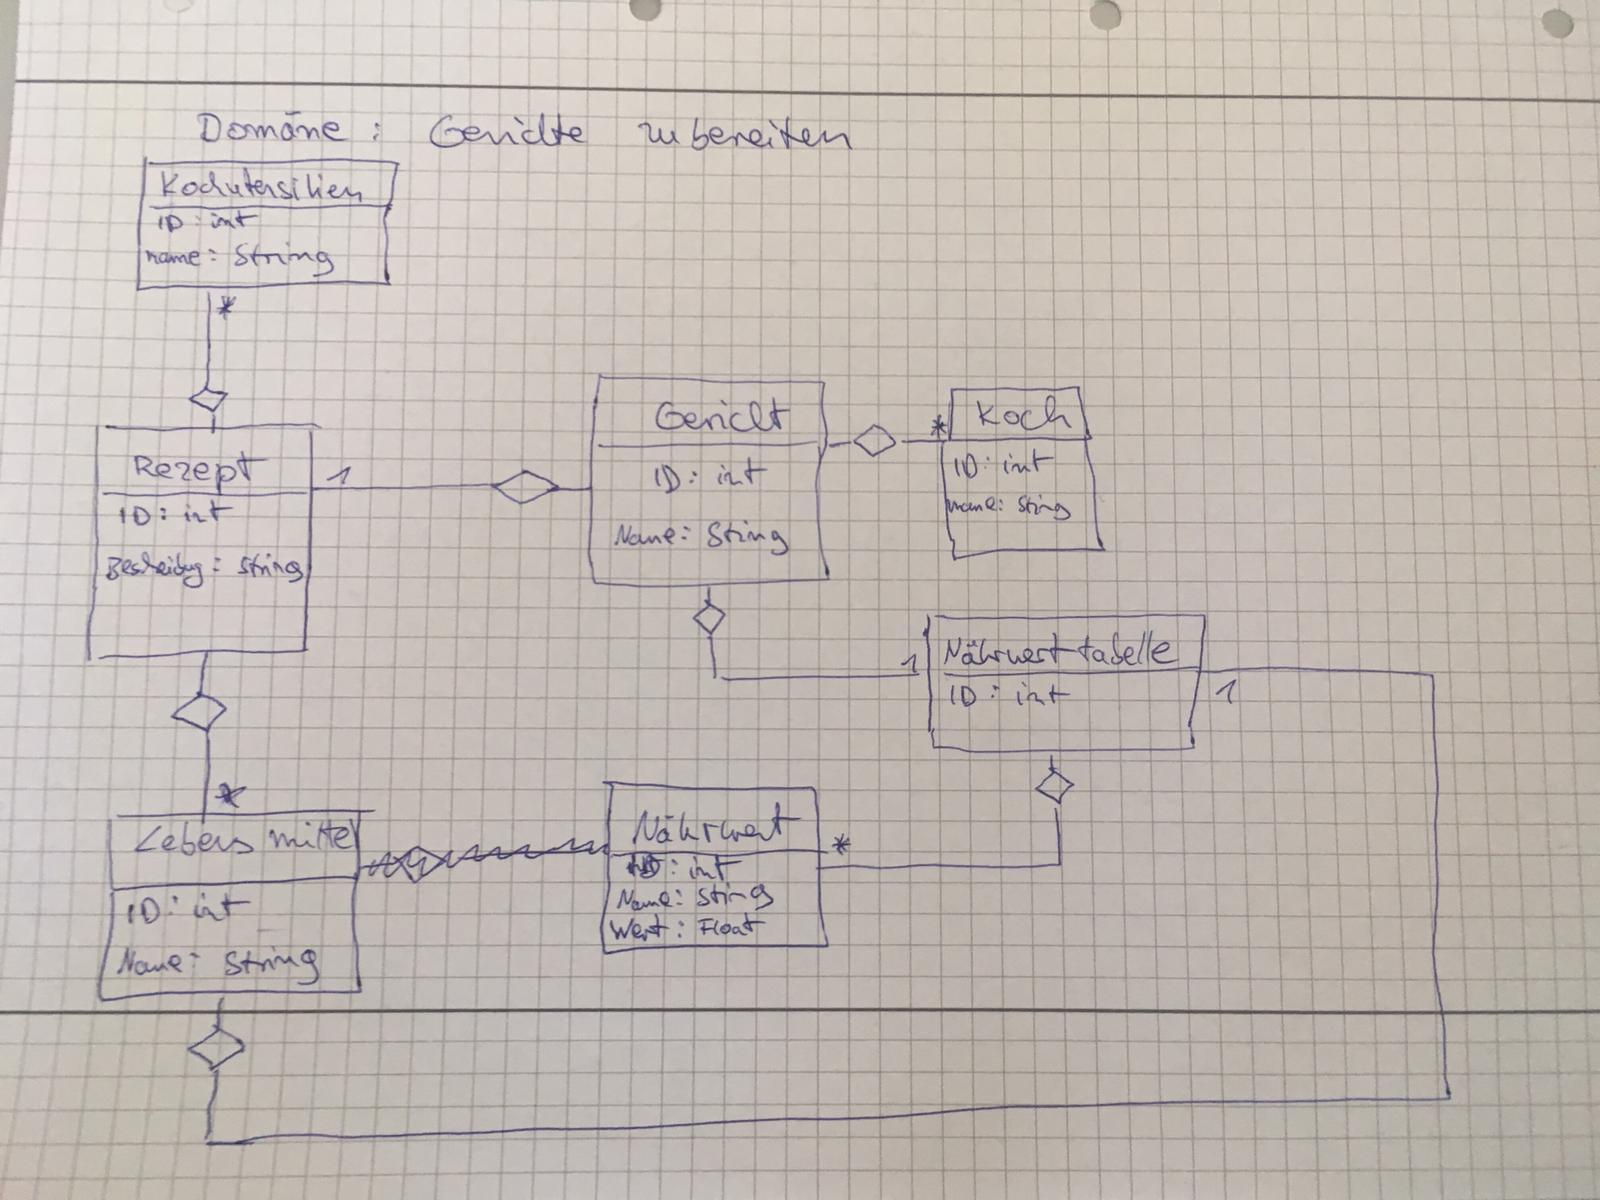 Domäne: Gerichte zubereiten
Kochutensilien
ID: int
name: String
*
Rezept
ID: int
Beschreibug: String
1
Gericht
ID: int
Name: Sting
*
Koch
ID: int
name: Sting
1
Nährwerttabelle
ID: int
1
*
Lebensmittel
ID: int
Name: String
Nährwert
ID: int
Name: String
Wert: Float
*